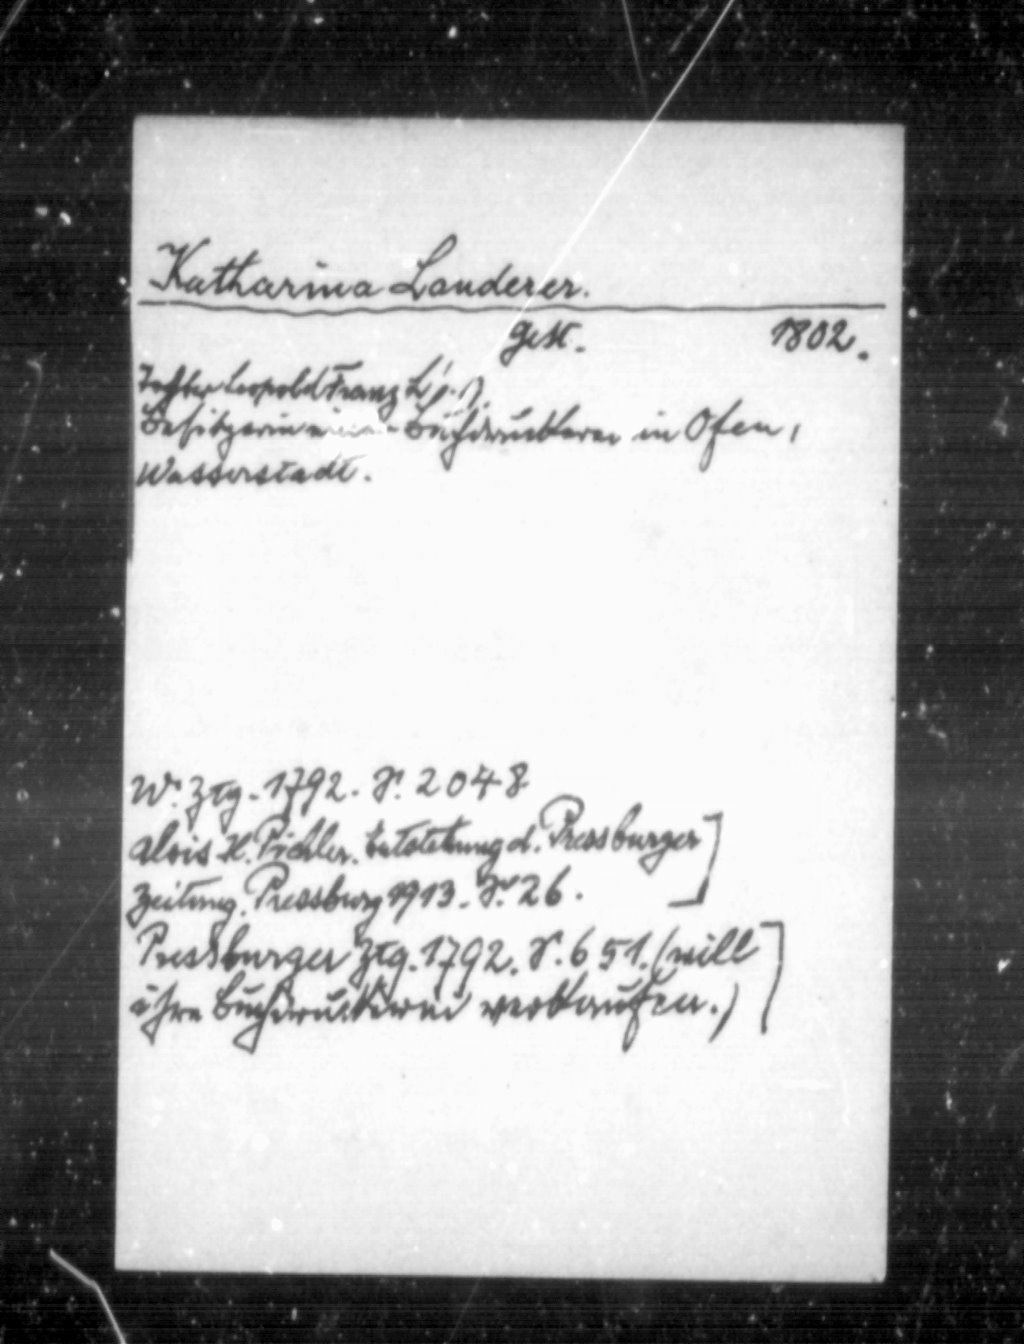 Katharina Landerer.
gest. 1802.
Tochter Leopold Franz L's.
Besitzerin einer Buchdruckerei in Ofen,
Wasserstadt.
W. Ztg. 1792. S. 2048
Alois H. Pichler. Entstehung d. Pressburger
Zeitung. Pressburg 1913. S. 26.
Pressburger Ztg. 1792. S. 651. (will
ihre Buchdruckerei verkaufen.)